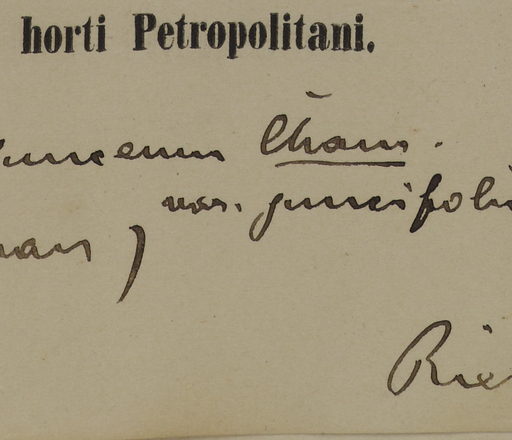 horti Petropolitani.
unceum Cham.
var. juncifoli
nan)
Rie